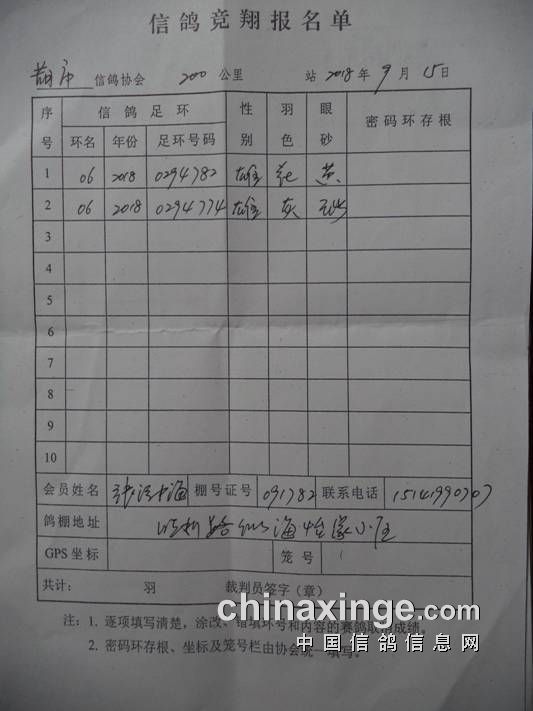 信鸽竞翔报名单
信鸽协会 200 公里 站 2018年9月15日
序号 信鸽足环 性别 羽色 眼砂 密码环存根
环名 年份 足环号码
1 06 2018 0294782 雄 花 黄
2 06 2018 0294774 雄 灰 砂
3
4
5
6
7
8
9
10
会员姓名 棚号证号 091782 联系电话 15141990707
鸽棚地址
GPS坐标 笼号
共计： 羽 裁判员签字（章）
注：1. 逐项填写清楚，涂改、错填环号和内容的赛鸽取消成绩。
2. 密码环存根、坐标及笼号栏由协会统一填写。
chinaxinge.com
中国信鸽信息网